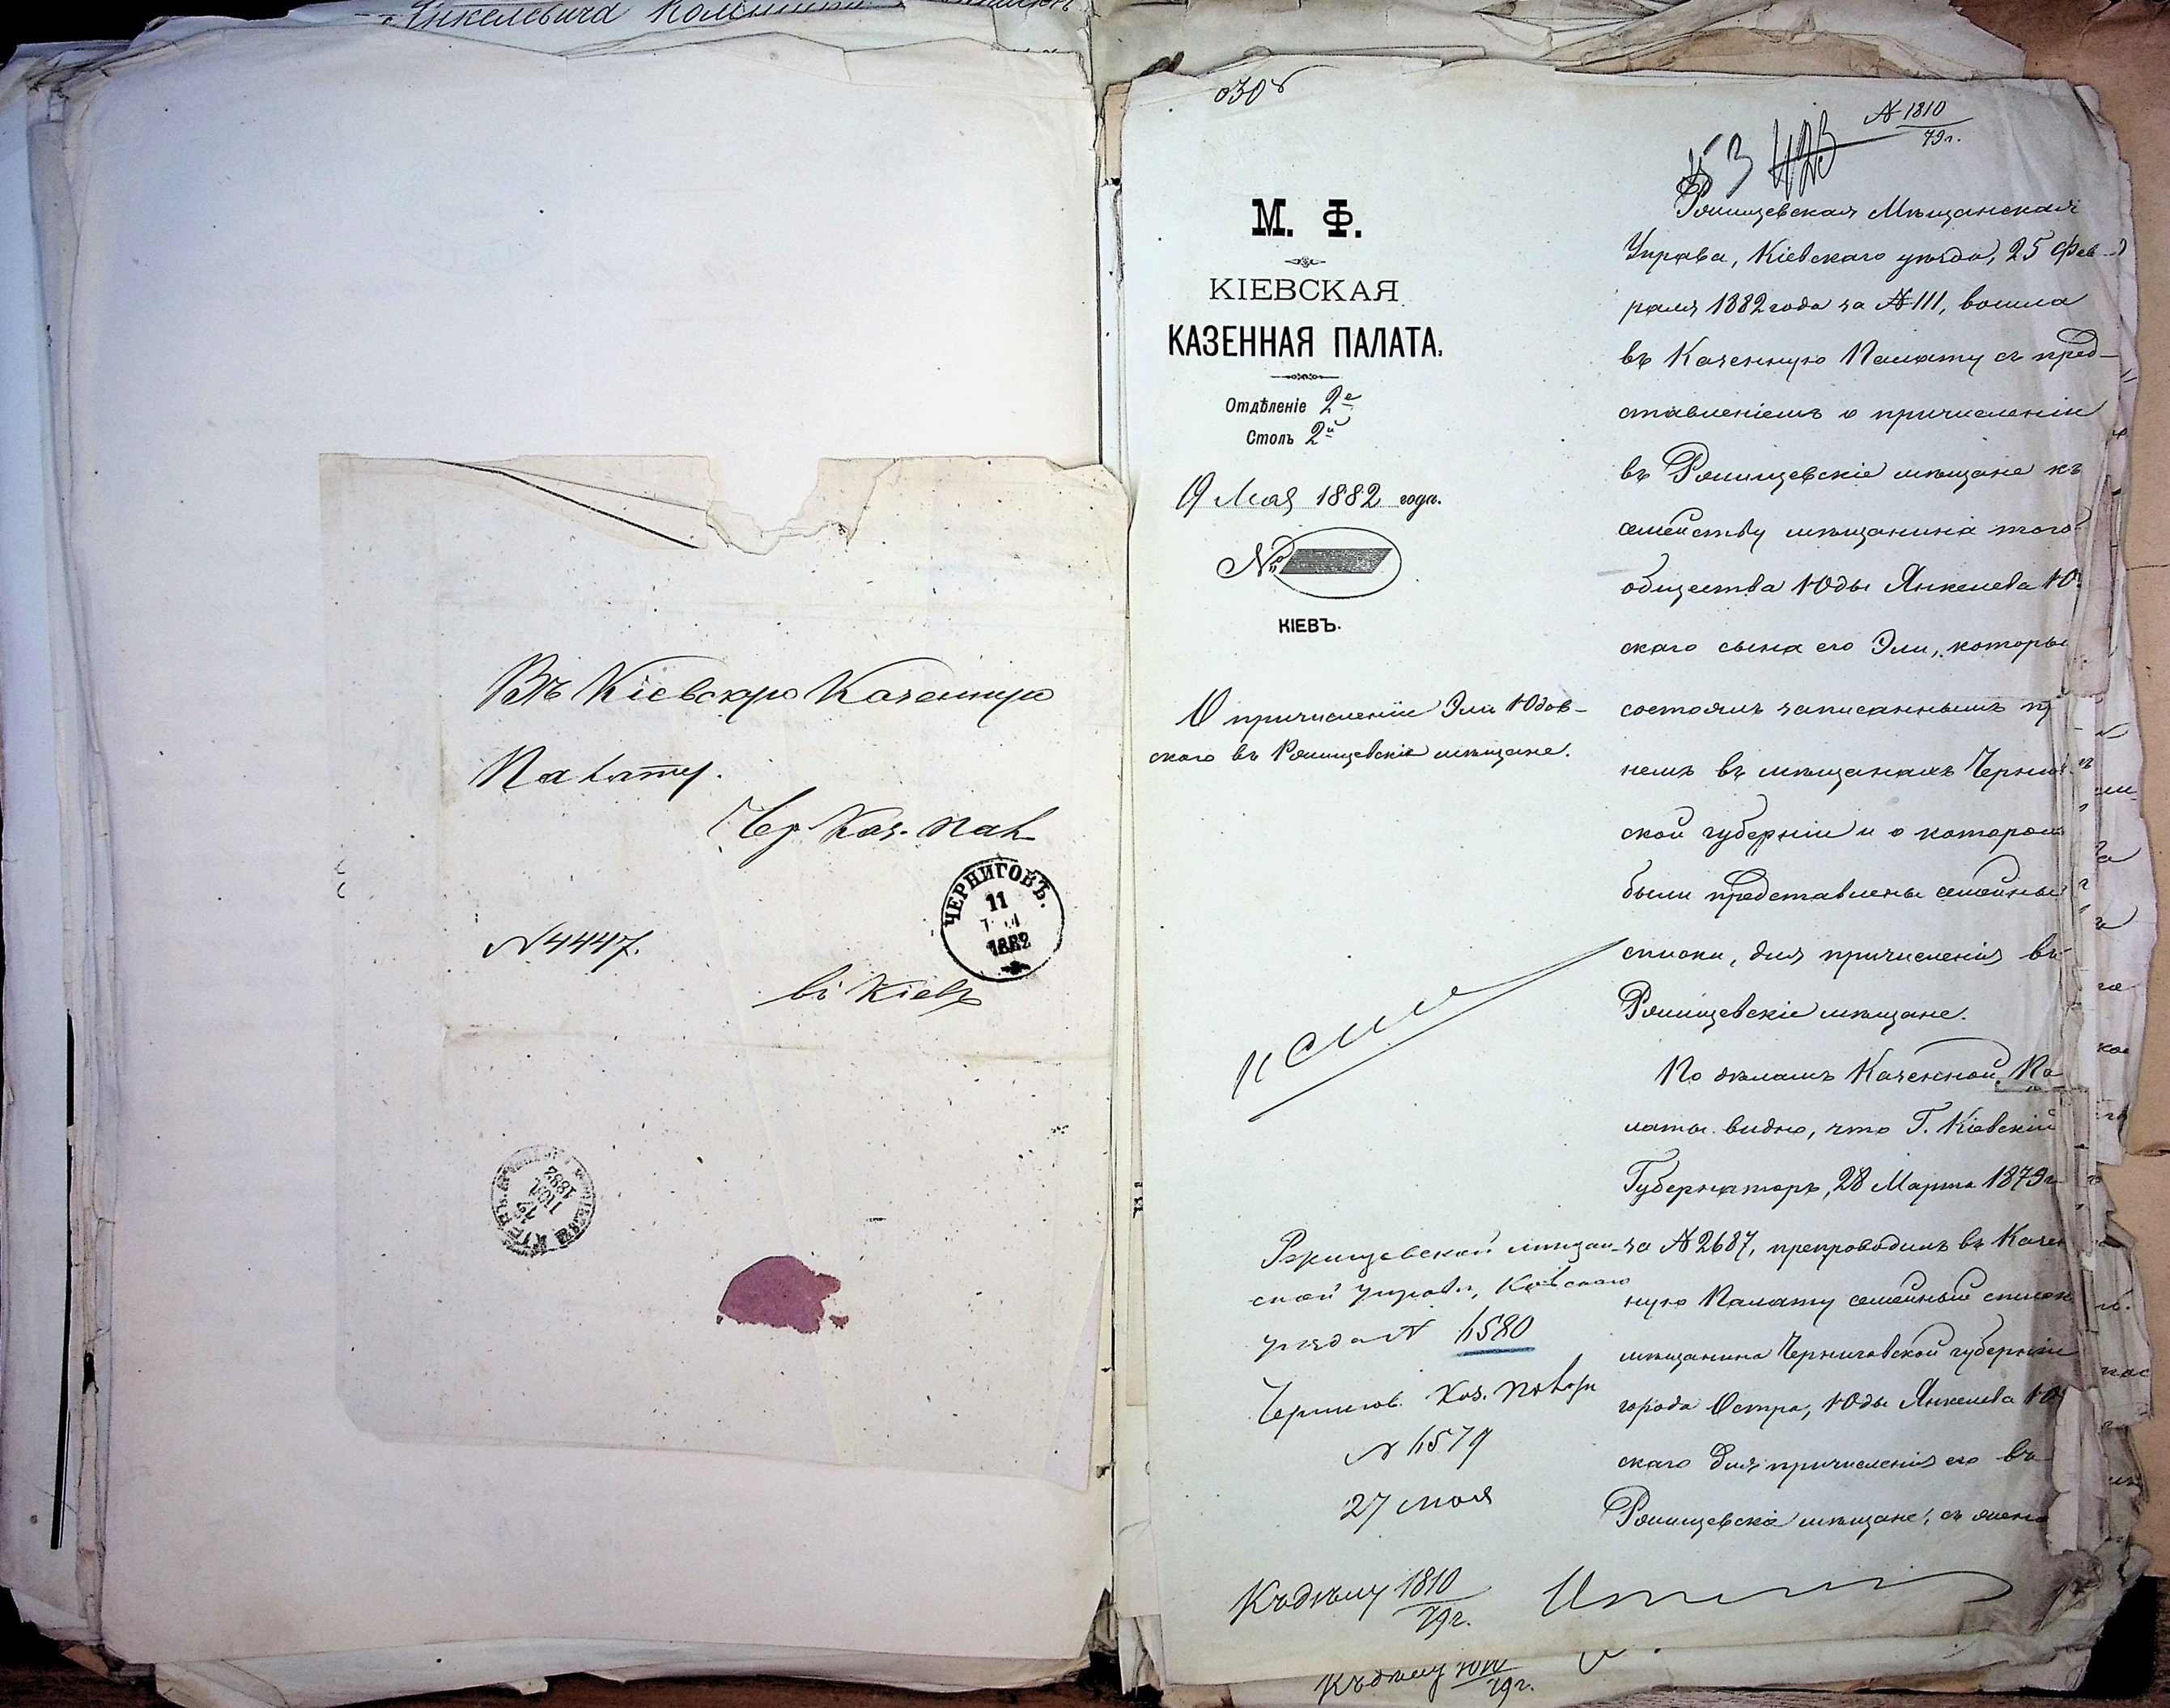 Янкелевича
Въ Кіевскую Казенную
Палату.
Чер. Каз. Пал
ЧЕРНИГОВЪ.
11
1882
№ 4447.
въ Кіевъ
19
ІЮЛ
1882
М. Ф.
КІЕВСКАЯ
КАЗЕННАЯ ПАЛАТА.
Отдѣленіе 2е
Столъ 2й
19 Мая 1882 года.
№
КІЕВЪ.
О причисленіи Эли Юдов-
скаго въ Ржищевскіе мѣщане.
Ржищевской мѣщан-
ской управѣ, Кіевскаго
уѣзда №
Чернигов. Каз. Палатѣ
№
27 мая
Къ дѣлу 1810/79г.
№ 1810/79г.
53 423
Ржищевская Мѣщанская
Управа, Кіевскаго уѣзда, 25 Фев-
раля 1882 года за № 111, вошла
въ Казенную Палату съ пред-
ставленіемъ о причисленіи
въ Ржищевскіе мѣщане къ
семейству мѣщанина того
общества Юды Янкелева Ю
скаго сына его Эли, которы
состоялъ записаннымъ п
немъ въ мѣщанахъ Черниг
ской губерніи и о котором
были представлены семейные
списки, для причисленія въ
Ржищевскіе мѣщане.
По дѣламъ Казенной Па
латы видно, что Г. Кіевскій
Губернаторъ, 28 Марта 1879 г.
за № 2687, препроводилъ въ Казен
ную Палату семейный списокъ
мѣщанина Черниговской губерніи
города Остра, Юды Янкелева Ю
скаго для причисленія его въ
Ржищевскіе мѣщане, съ
Къ дѣлу 1810/79г.